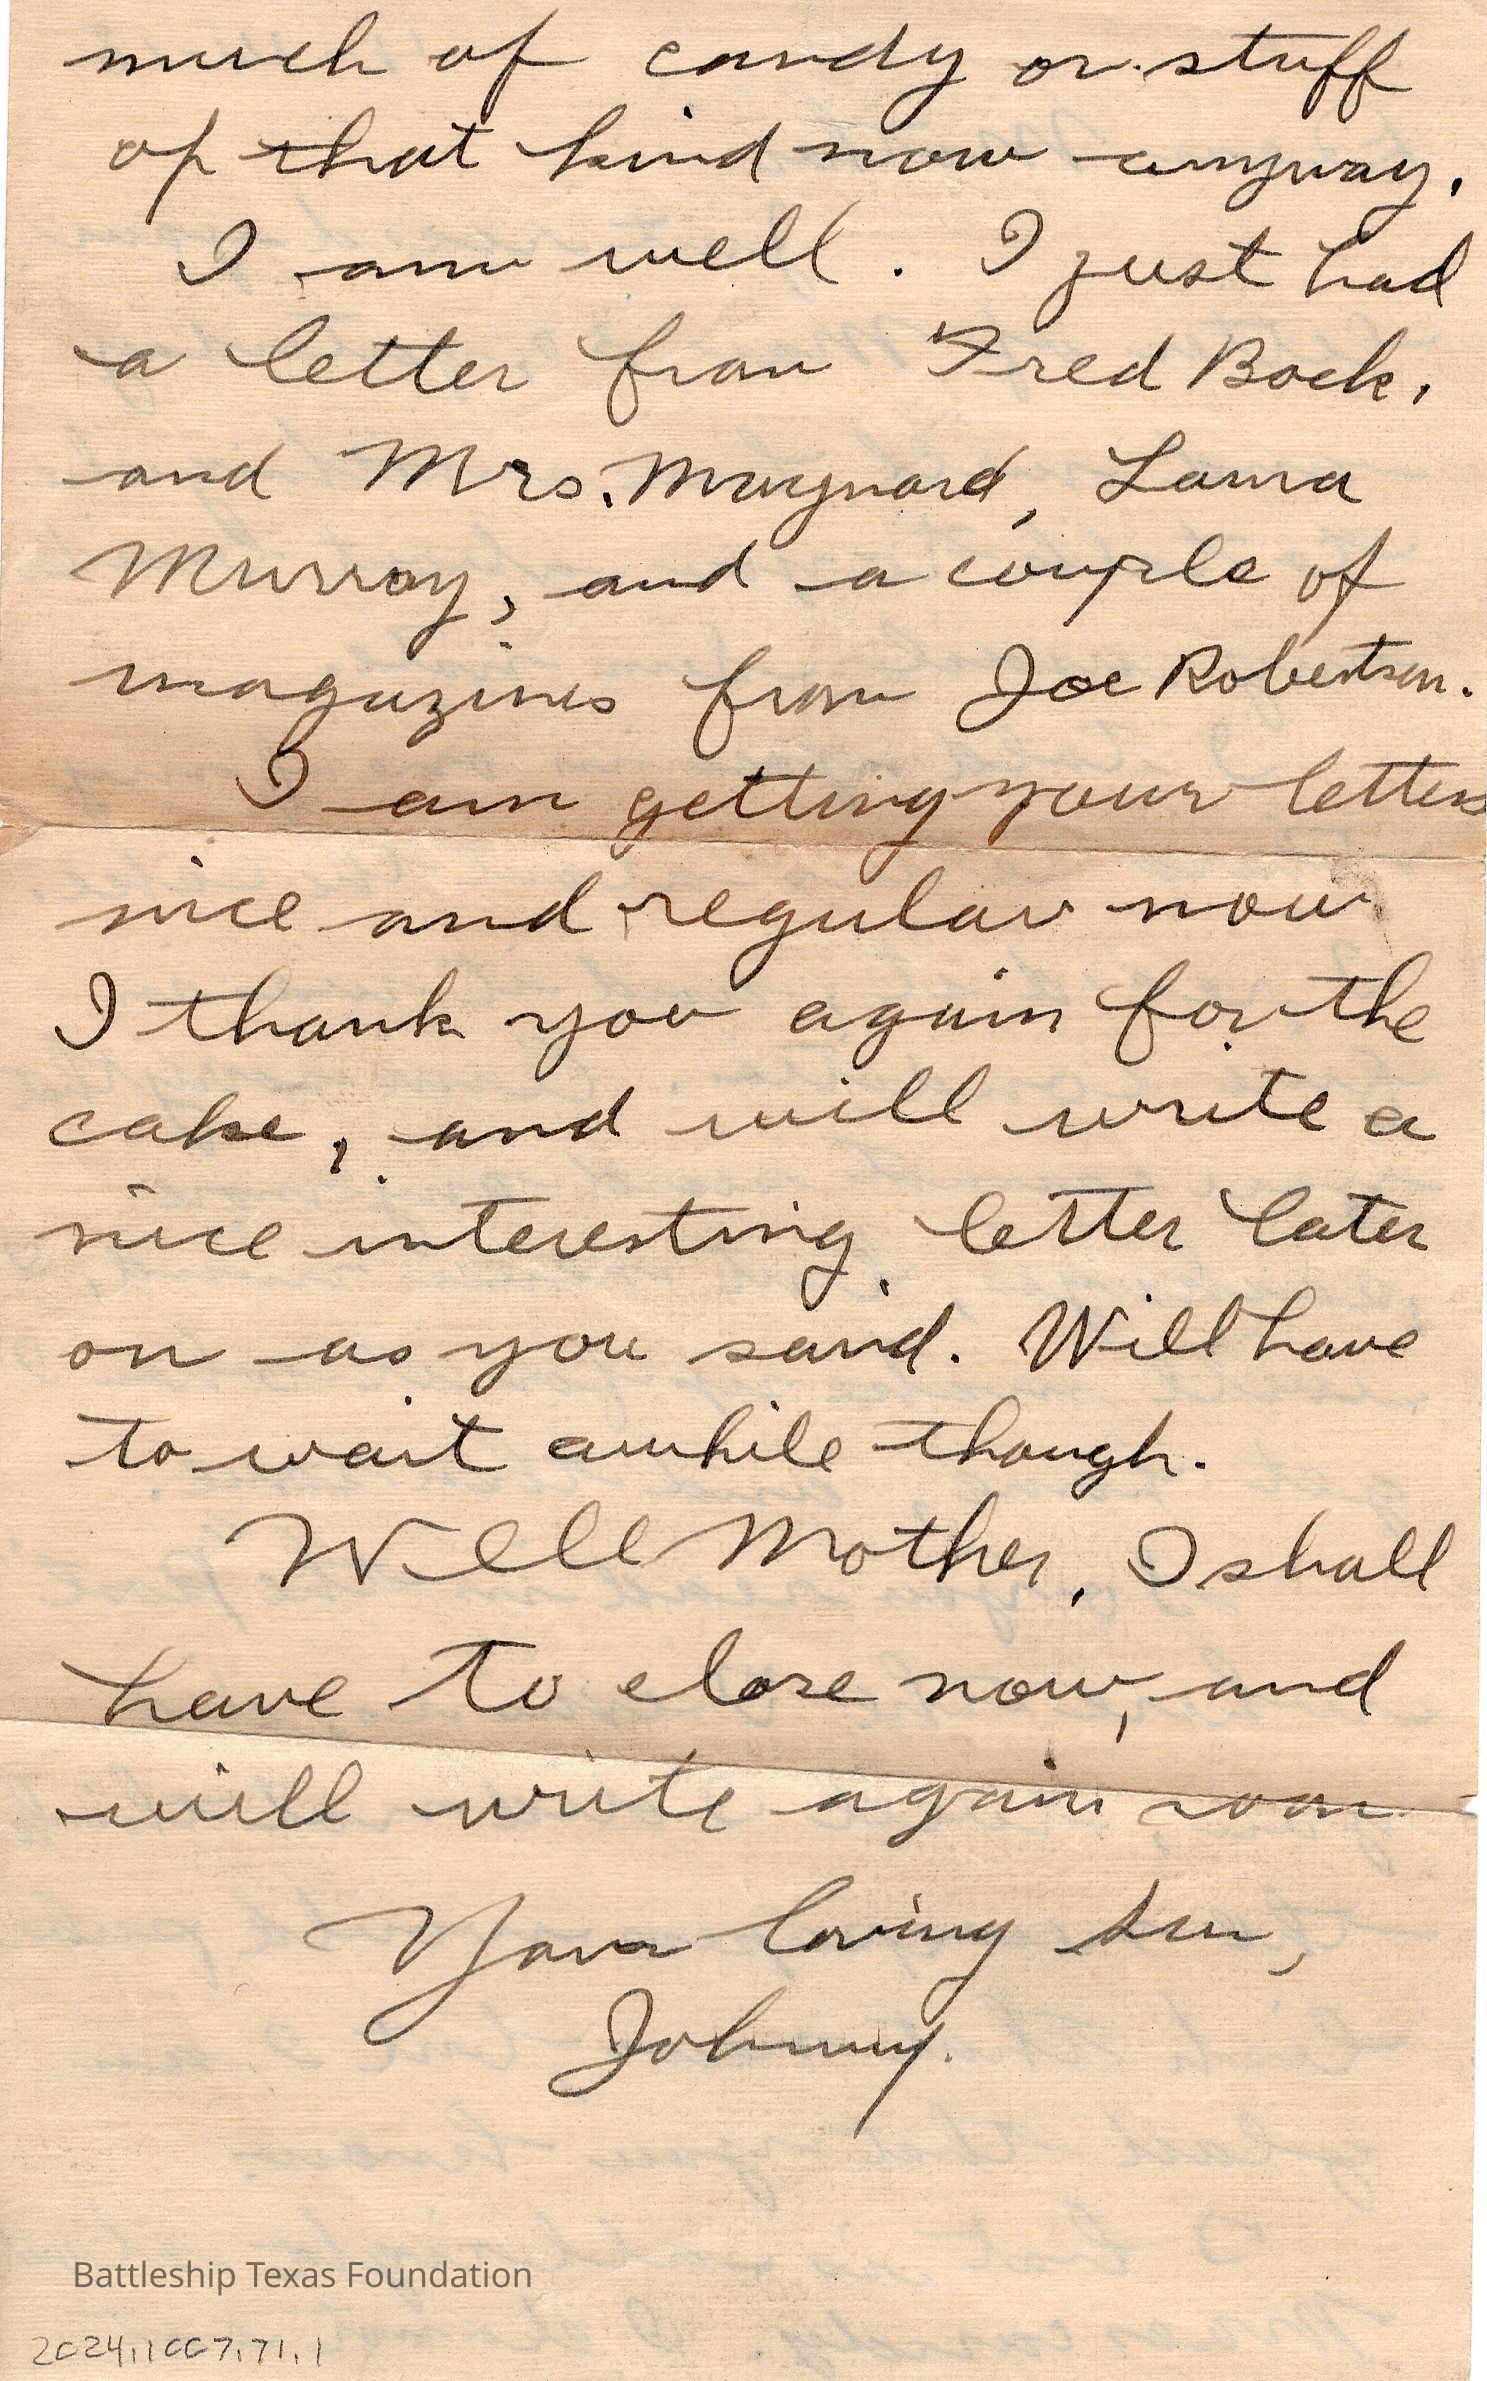 much of candy or stuff
of that kind now anyway.
I am well. I just had
a letter from Fred Bock,
and Mrs. Maynard, Lorna
Murray, and a couple of
magazines from Joe Robertson.
I am getting your letters
nice and regular now
I thank you again for the
cake, and will write a
nice interesting letter later
on as you said. Will have
to wait awhile though.
Well Mother, I shall
have to close now, and
will write again soon
Your loving son,
Johnny.
Battleship Texas Foundation
2024.1007.71.1